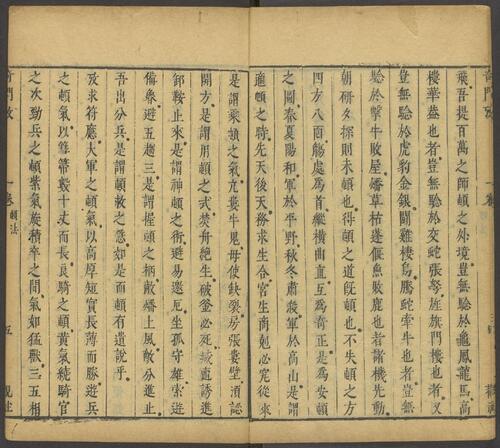 飛吾提百萬之師頓之外境豈無驗於龜鳳龍馬高
樓華蓋也者豈無驗於交蛇張弩旌旗門樓也者又
豈無驗於虎豹金銀鬪雞棲烏騰蛇牽牛也者無
驗於擊牛敗屋墦草枯蓬偃魚敗鹿也者諸機先動
朝研夕探則未頓也得頓之道既頓也不失頓之方
四方八面觸處為首縱橫曲直互為奇正是為安頓
之圖春夏陽和軍於平野秋冬肅殺軍於高山是謂
適頓之時先天後天務求生合宮生商剋必究從來
是謂乘頓之氣九囊牛凫毋使缺裂房張囊壁須認
開方是謂用頓之式焚舟絶生破釜必死緘直誘進
卸鞍止來是謂神頓之術避易遠厄坐孤守雄索遊
備象避五趨三是謂握頓之柄敵墦上風敵分進止
吾出分兵是謂頓敵之意如是而頓有遺說乎
攷求符應大軍之頓氣以高厚短實長薄而勝遊兵
之頓氣以篲帶數十丈而長良騎之頓黃氣繞騎官
之次勁兵之頓紫氣旋積卒之間氣如猛獸三五相
奇門攷
一卷
頓法
五